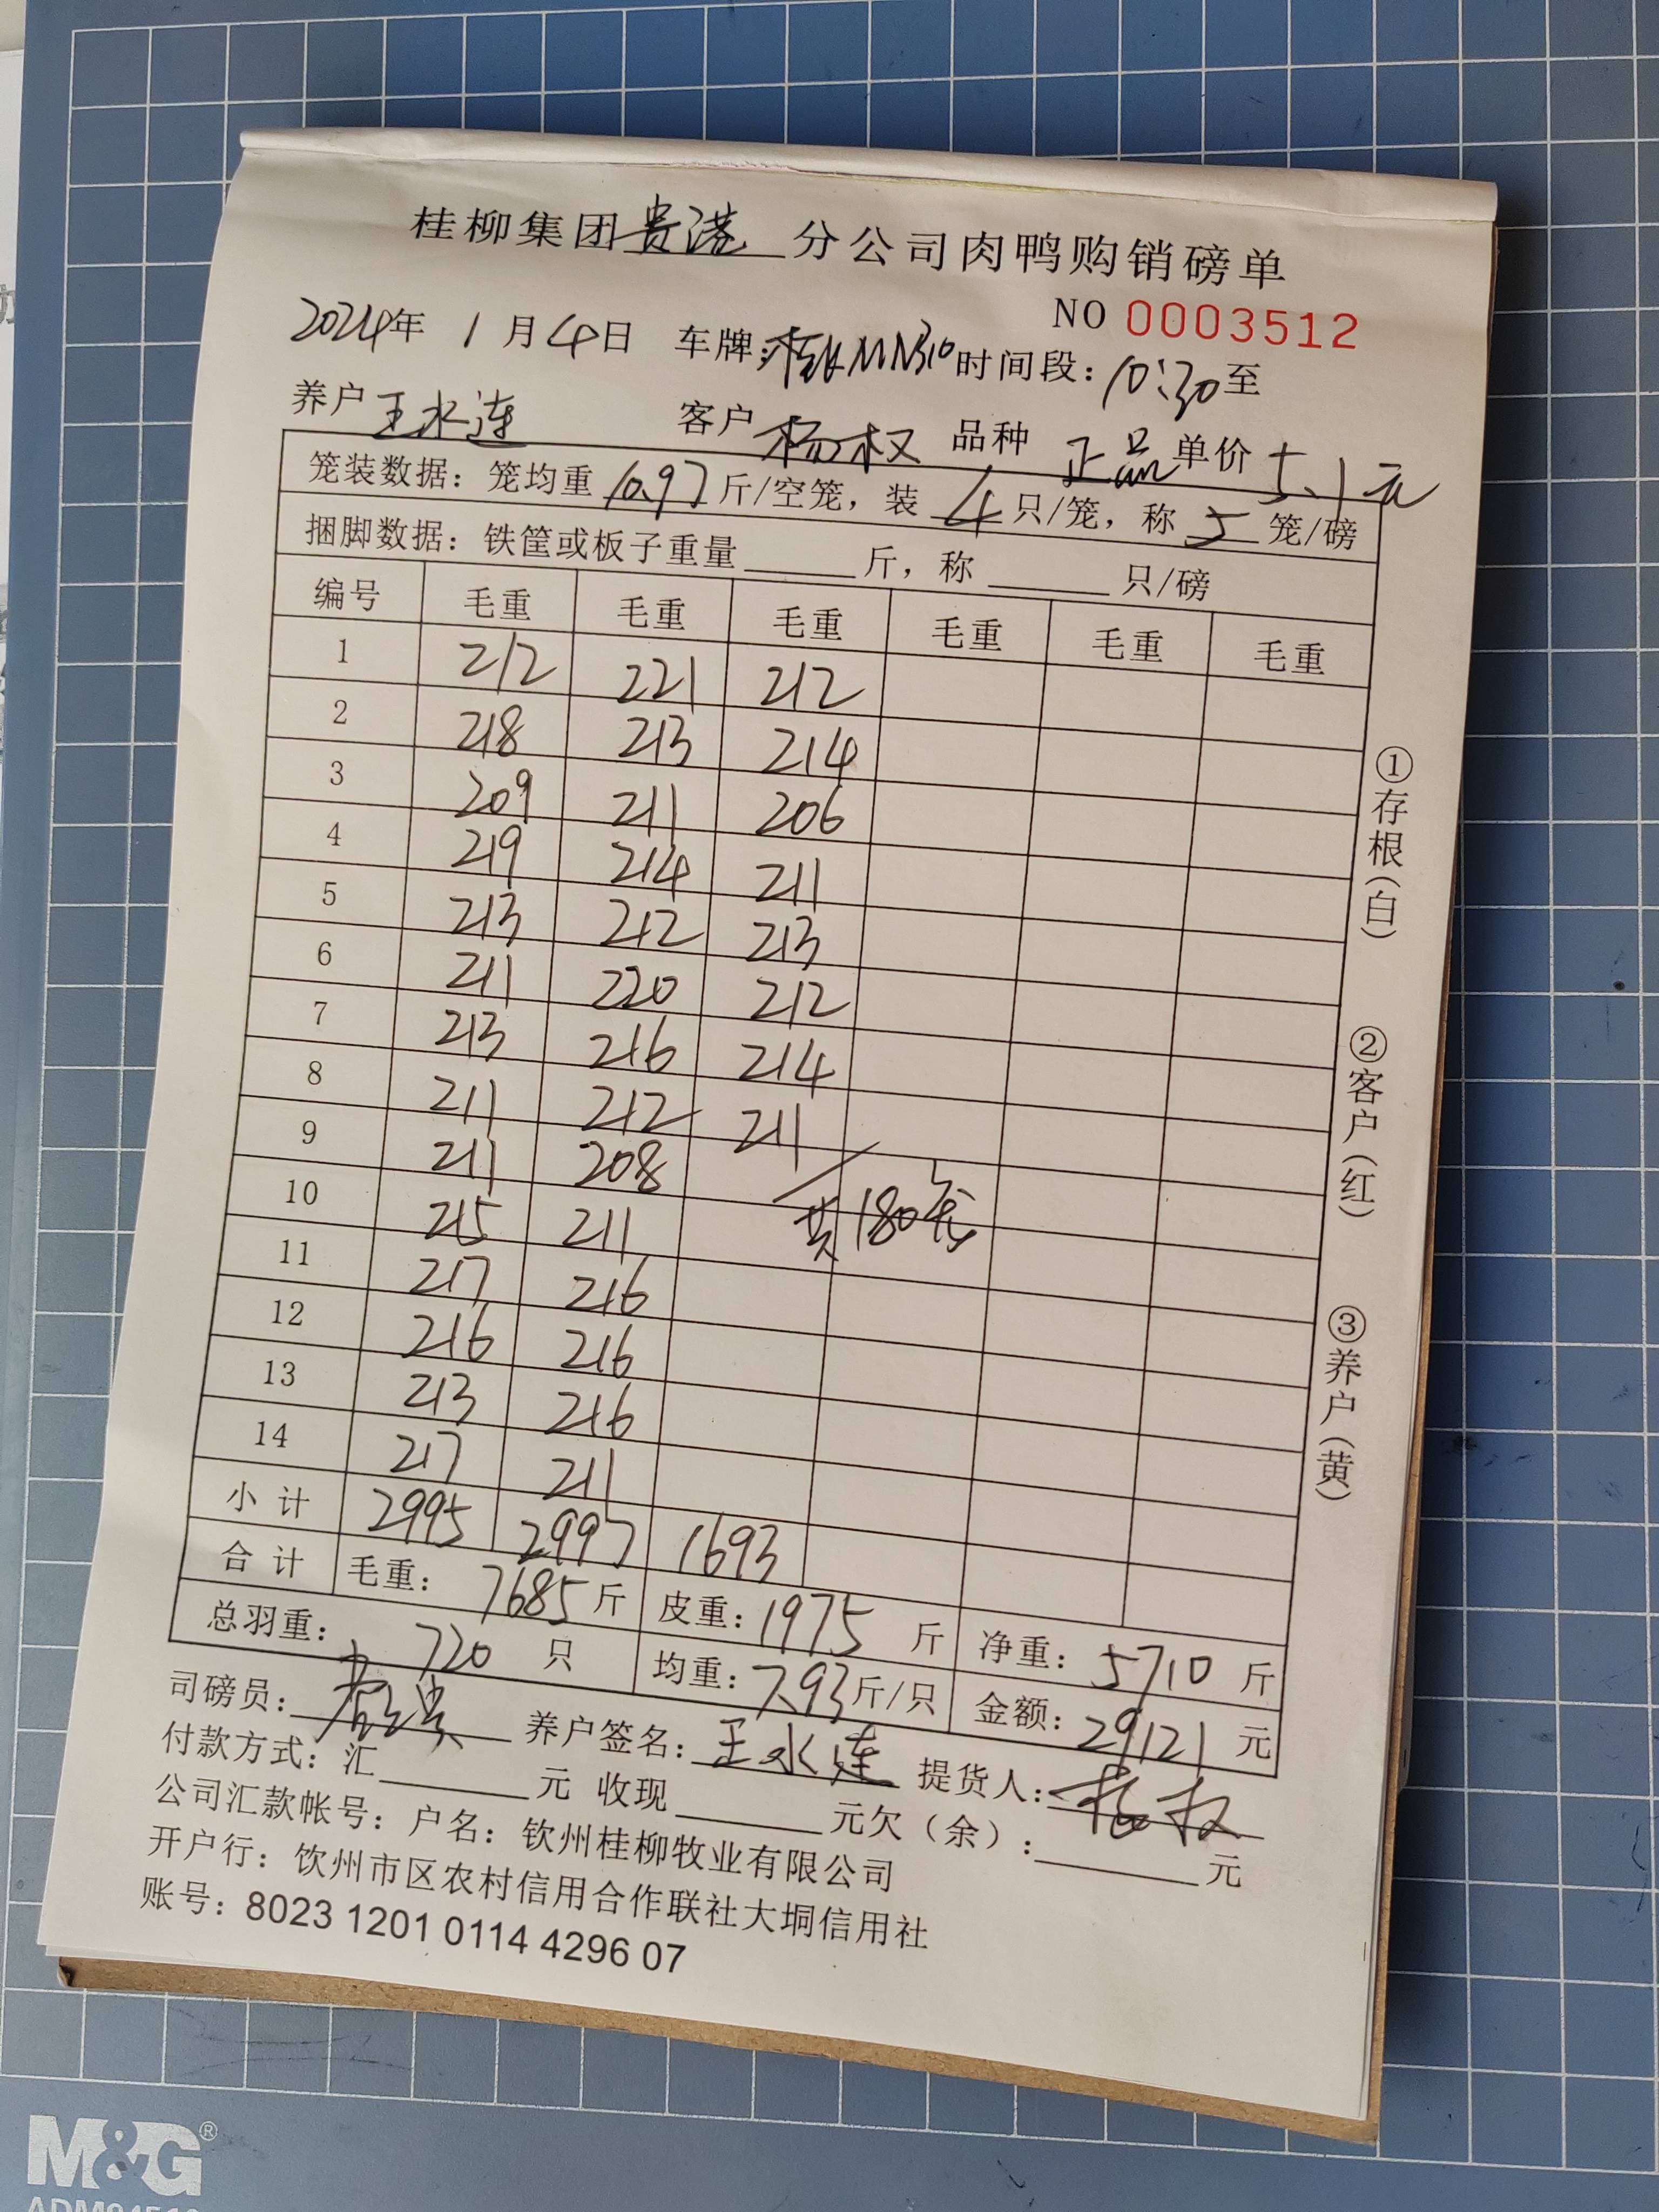 桂柳集团贵港分公司肉鸭购销磅单
NO 0003512
2024年 1月4日 车牌:桂KMN310 时间段:10:30至
养户 王水连 客户 杨权 品种 正品 单价 5.1元
笼装数据:笼均重 10.97 斤/空笼,装 4 只/笼,称 5 笼/磅
捆脚数据:铁筐或板子重量 斤,称 只/磅
编号 毛重 毛重 毛重 毛重 毛重 毛重
1 212 221 212
2 218 213 214
3 209 211 206
4 219 214 211
5 213 212 213
6 211 220 212
7 213 216 214
8 211 212 211
9 211 208
共180笼
10 215 211
11 217 216
12 216 216
13 213 216
14 217 211
小计 2995 2997 1693
合计 毛重:7685斤 皮重:1975斤 净重:5710斤
总羽重:720只 均重:7.93斤/只 金额:29121元
司磅员: 养户签名:王水连 提货人:杨权
付款方式:汇 元 收现 元欠(余): 元
公司汇款帐号:户名:钦州桂柳牧业有限公司
开户行:饮州市区农村信用合作联社大垌信用社
账号:8023 1201 0114 4296 07
①存根(白)
②客户(红)
③养户(黄)
M&G®